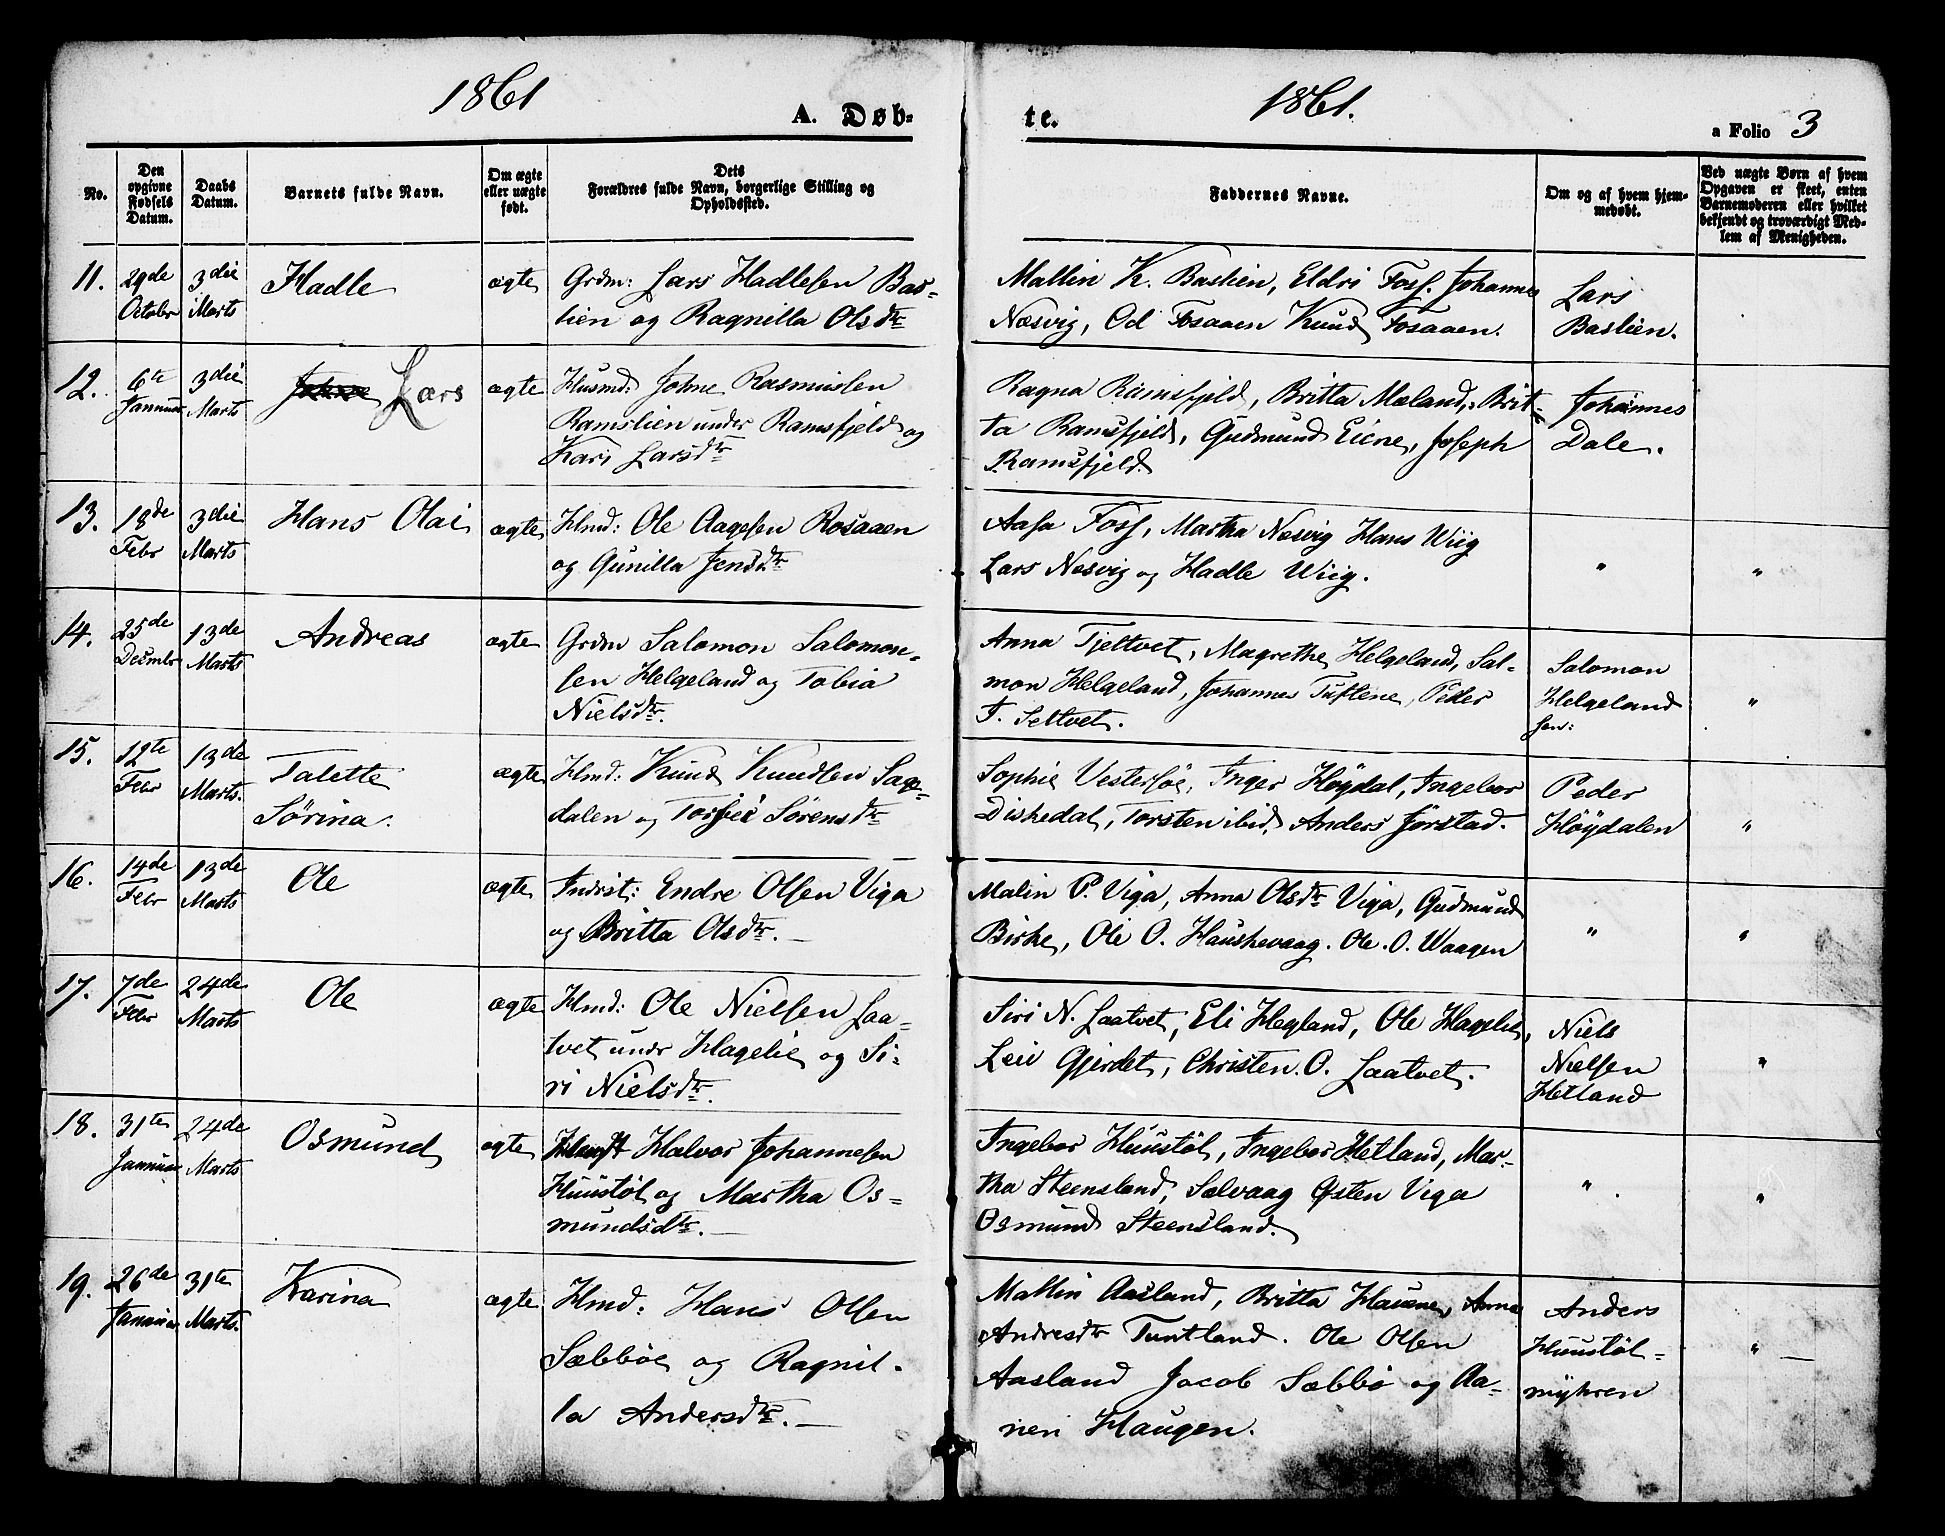 1861
A. Døb-
No.
Den opgivne Fødsels Datum.
Daabs Datum.
Barnets fulde Navn.
Om ægte eller uægte født.
Dets Forældres fulde Navn, borgerlige Stilling og Opholdssted.
te.
1861.
a Folio 3
Faddernes Navne.
Om og af hvem hjemmedøbt.
Ved uægte Børn af hvem Opgaven er skeet, enten Barnemoderen eller hvilket bekjendt og troværdigt Medlem af Menigheden.
11. 29de October 3die Marts Hadle ægte
Grdm: Lars Hadlesen Bas-
lien og Ragnilla Olsdtr
Mallin K. Baslien, Eldri Foss, Johannes
Næsvig, Od Fosaaen Knud Fosaaen.
Lars
Baslien.
12. 6te Januar 3die Marts Lars ægte
Husmd: Johne Rasmussen
Ramslien under Ramsfjeld og
Kari Larsdtr
Ragna Ramsfjeld, Britta Mæland, Brit-
ta Ramsfjeld, Gudmund Eiene, Joseph
Ramsfjeld.
Johannes
Dale.
13. 18de Febr 3die Marts Hans Olai ægte
Hmd: Ole Aagesen Rosaaen
og Gunilla Jensdtr
Aasa Foss, Martha Næsvig Hans Wiig
Lars Nesvig og Hadle Wiig.
" "
14. 25de Decmbr 13de Marts Andreas ægte
Grdm Salomon Salomon-
sen Helgeland og Tobia
Nielsdtr.
Anna Tjeltvet, Magrethe Helgeland, Sal-
mon Helgeland, Johannes Tuftene, Peder
T. Seltvet.
Salomon
Helgeland
sen:
"
15. 12te Febr 13de Marts. Talette
Sørina. ægte
Hmd: Knud Knudsen Sage-
dalen og Torbier Sørensdtr
Sophie Vestersøe, Inger Høydal, Ingebor
Dishedal, Torsten ibid, Anders Jørstad.
Peder
Høydalen
"
16. 14de Febr 13de Marts Ole ægte
Indrst: Endre Olsen Viga
og Britta Olsdtr.
Malin P. Viga, Anna Olsdtr Viga, Gudmund
Birke, Ole O. Haushevaag. Ole O. Waagen
" "
17. 7de Febr 24de Marts Ole ægte
Hmd: Ole Nielsen Laa-
tvet undr Hagelie og Si-
ri Nielsdtr.
Siri N. Laatvet, Eli Hegland, Ole Hagelie,
Leiv Gjerdet, Christen O. Laatvet.
Niels
Nielsen
Hetland
"
18. 31te Januar 24de Marts Osmund ægte
Halvor Johannesen
Huustøl og Martha Os-
mundsdtr.
Ingebor Huustøl, Ingebor Hetland, Mar-
tha Steensland, Salvaag Østen Viga
Osmund Steensland.
" "
19. 26de Januar 31te Marts. Karina ægte
Hmd: Hans Olsen
Sæbbøe og Ragnil-
la Andersdtr.
Mallin Aasland, Britta Hausne, Anna
Andresdtr Tuntland. Ole Olsen
Aasland Jacob Sæbbø og Aa-
nen Haugen.
Anders
Huustøl-
myhren
"